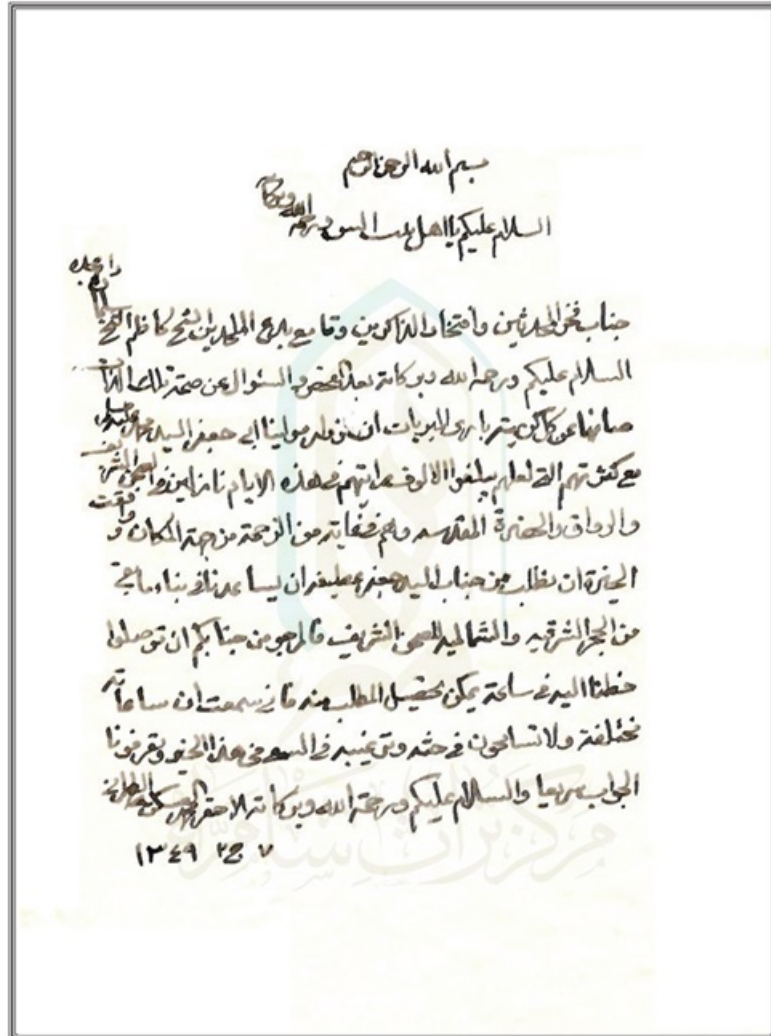 بسم الله الرحمن الرحيم
السلام عليكم يا اهل بيت النبوة ورحمة الله وبركاته
جناب فخر المحدثين وافتخار الذاكرين وقامع بدع الملحدين الشيخ كاظم
السلام عليكم ورحمة الله وبركاته بعد الفحص والسئوال عن صحة تلك الذات
صانها عن كل كدر باري البريات ان زوار مولينا ابي جعفر السيد محمد
مع كثرتهم التي لعلهم يبلغوا الالوف في هذه الايام نازلين في الصحن الشريف
والرواق والحضرة المقدسه وهم في غاية من الزحمة من جهة المكان و
الحيرة ان نطلب من جناب السيد جعفر عطيفه ان يساعدنا في بناء ما بقي
من الحجر الشرقيه والشماليه للصحن الشريف فالمرجو من جنابكم ان توصلوا
خطنا اليه في ساعة يمكن تحصيل المطلب منه فاني سمعت ان ساعاته
مختلفة ولا تسامحون في حثه وترغيبه في السعي في هذا الخير وتعرفونا
الجواب سريعا والسلام عليكم ورحمة الله وبركاته الاحقر
٧ ج٢ ١٣٤٩
مركز تراث سامراء